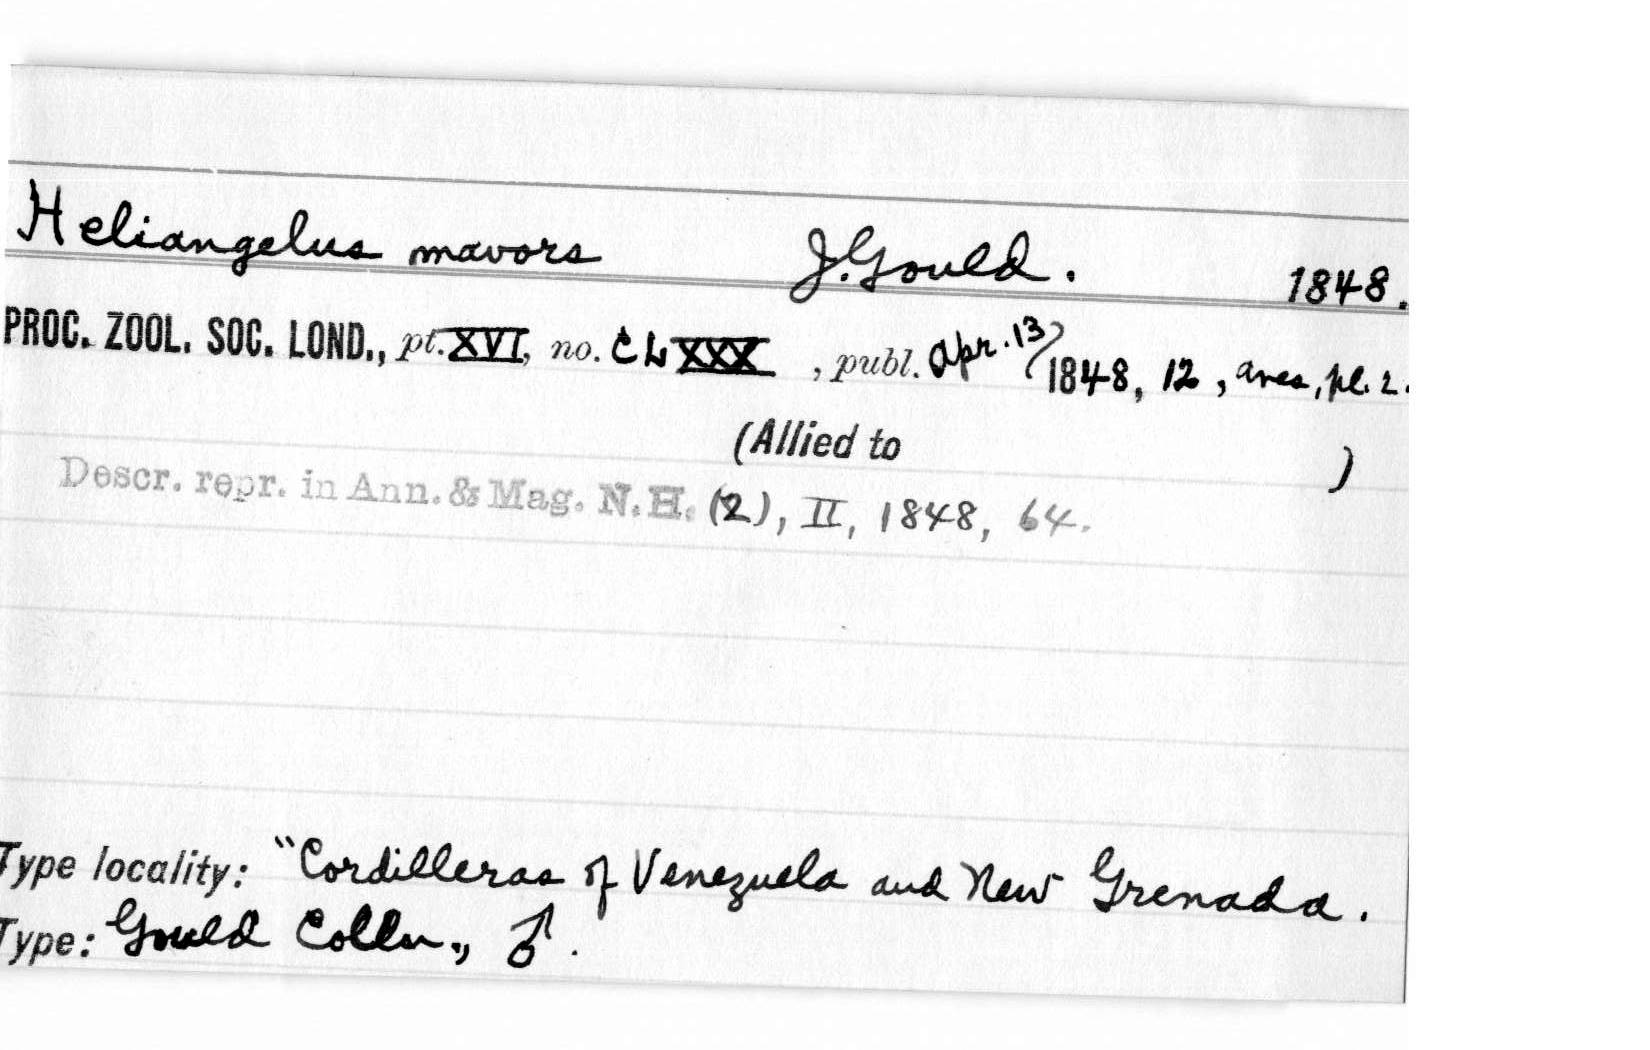 Heliangelus mavors J. Gould. 1848.
PROC. ZOOL. SOC. LOND., pt. XVI, no. CLXXX, publ. Apr. 13/1848, 12, aves, pl. 2.
(Allied to )
Descr. repr. in Ann. & Mag. N.H. (2), II, 1848, 64.
Type locality: "Cordilleras of Venezuela and New Grenada.
Type: Gould Colln., ♂.